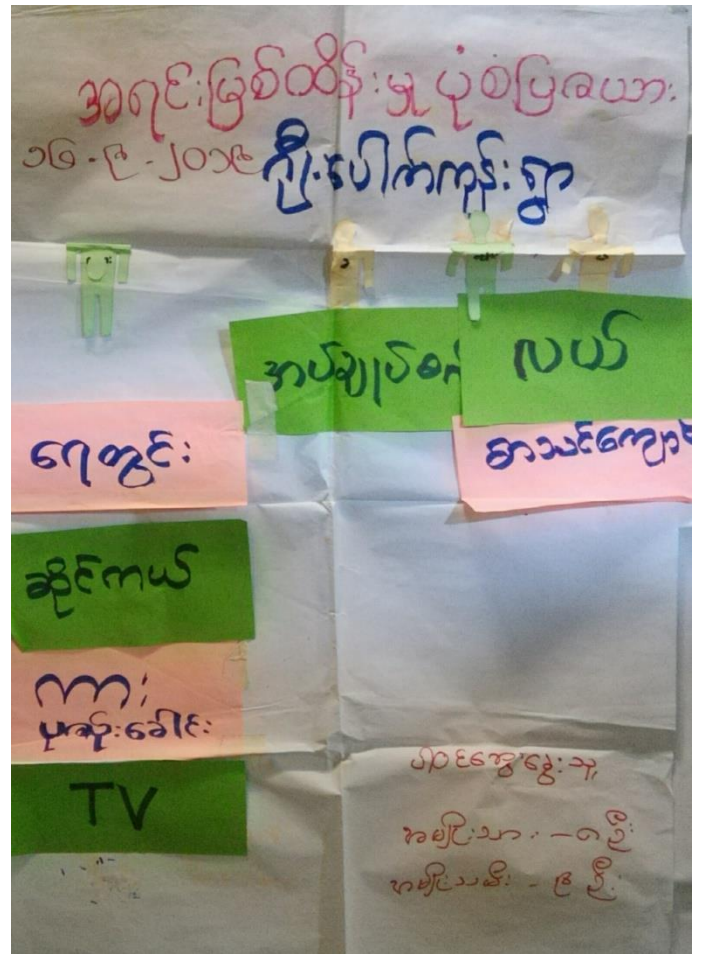 အရင်းမြစ်ထိန်းမှု ပုံစံပြဇယား
၁၆-၉-၂၀၁၉ ကြီးပေါက်ကုန်းရွာ
အပ်ချုပ်စက်
လယ်
ရေတွင်း
စာသင်ကျောင်း
ဆိုင်ကယ်
ကား
TV
ပါဝင်ဆွေးနွေးသူ
အမျိုးသား - ၈ ဦး
အမျိုးသမီး - ၉ ဦး